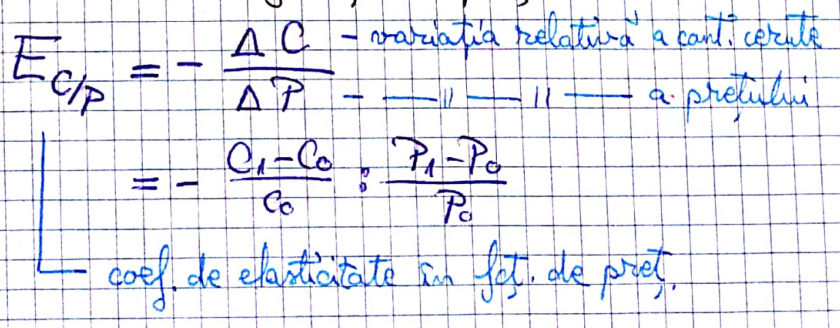 E_C/P = - ΔC / ΔP - variația relativă a cant. cerute
- —〃—〃— a prețului
= - (C₁-C₀)/C₀ : (P₁-P₀)/P₀
coef. de elasticitate în fcț. de preț.